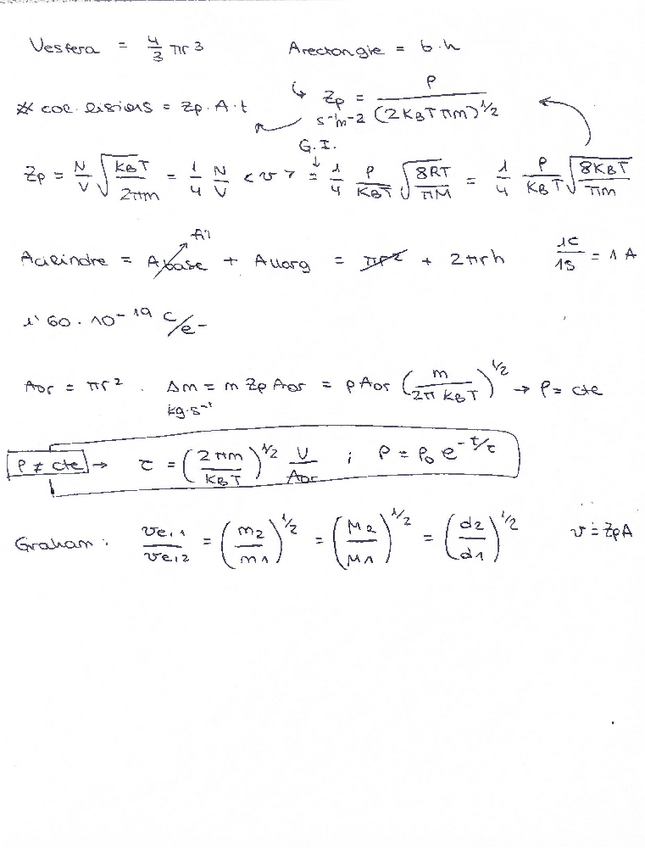 Vesfera = 4/3 πr³    Arectangle = b·h
# col·lisions = Zp·A·t    ↳ Zp = P / (2KBTπm)^1/2
s⁻¹m⁻²
G.I.
Zp = N/V √(KBT / 2πm) = 1/4 N/V <v> = 1/4 P/KBT √(8RT / πM) = 1/4 P/KBT √(8KBT / πm)
Acilindre = Abase + Allarg = πr² + 2πrh    1C/1s = 1 A
1'60·10⁻¹⁹ C/e⁻
Aor = πr². Δm = m Zp Aor = p Aor (m / 2π KBT)^1/2 → P = cte
kg·s⁻¹
P ≠ cte → τ = (2πm / KBT)^1/2 V/Aor ; P = P₀ e^(-t/τ)
Graham: ve,1 / ve,2 = (m2 / m1)^1/2 = (M2 / M1)^1/2 = (d2 / d1)^1/2    v = ZpA